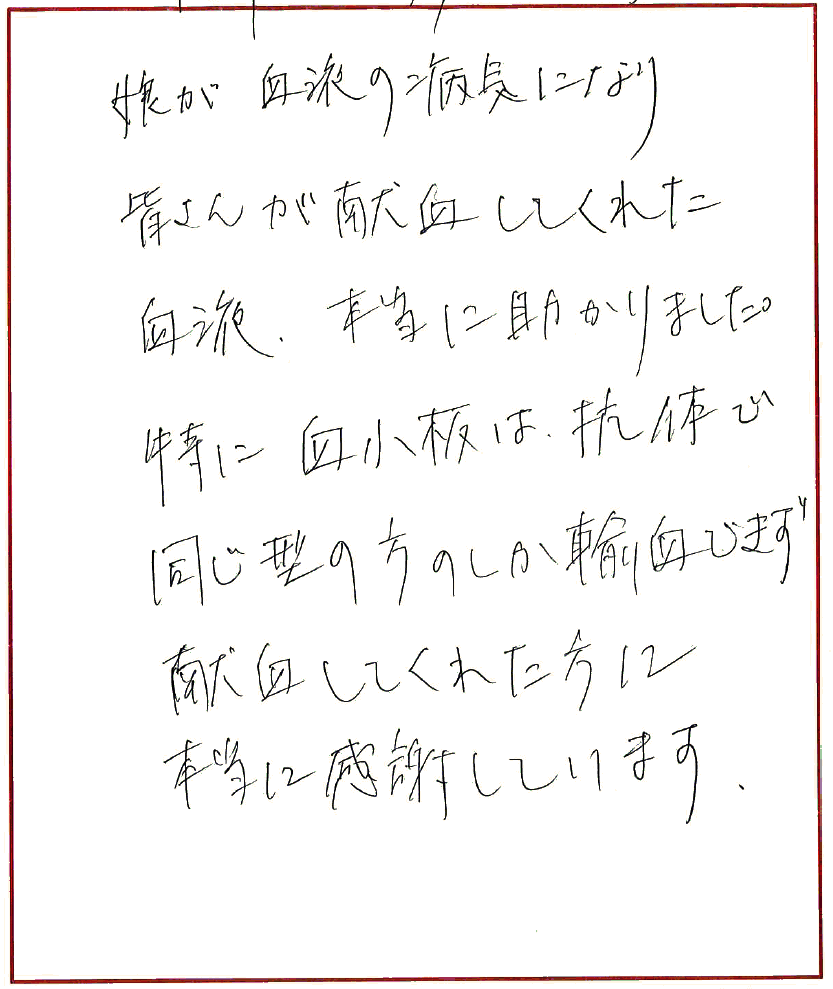 娘が血液の病気になり
皆さんが献血してくれた
血液、本当に助かりました。
特に血小板は、抗体で
同じ型の方のしか輸血できず
献血してくれた方に
本当に感謝しています.